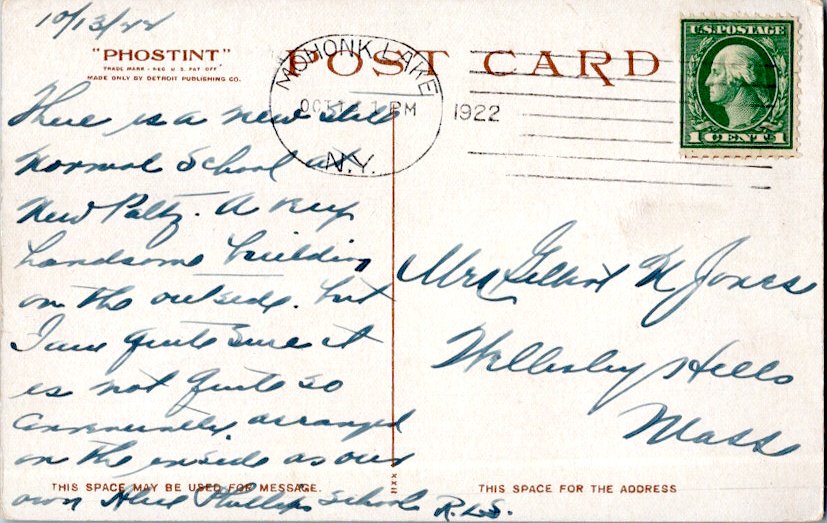 10/13/22
"PHOSTINT"
TRADE MARK - REG U. S. PAT OFF.
MADE ONLY BY DETROIT PUBLISHING CO.
POST CARD
MOHONK LAKE
OCT 1 PM
1922
N.Y.
U.S. POSTAGE
1 CENT 1
There is a new State
Normal School at
New Paltz. A very
handsome building
on the outside. but
I am quite sure it
is not quite so
conveniently arranged
on the inside as our
own Phillips School R.L.S.
Mrs Gilbert N Jones
Wellesley Hills
Mass
THIS SPACE MAY BE USED FOR MESSAGE.
THIS SPACE FOR THE ADDRESS